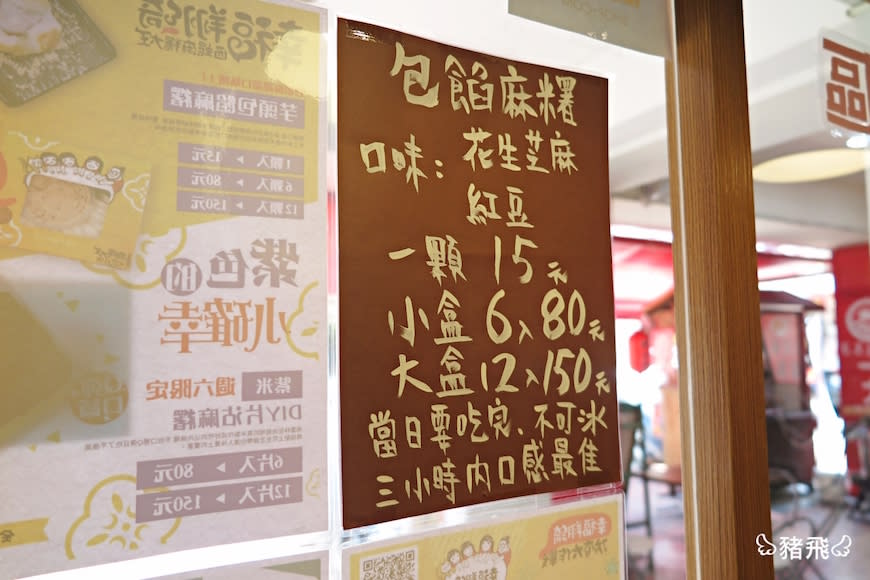 包餡麻糬
口味：花生芝麻
紅豆
一顆 15元
小盒 6入 80元
大盒 12入 150元
當日要吃完、不可冰
三小時內口感最佳
幸福翔鴿
西螺麻糬大王
芋頭包餡麻糬
1顆入 ▶ 15元
6顆入 ▶ 80元
12顆入 ▶ 150元
紫色的
小確幸
紫米 週六限定
DIY片沾麻糬
6片入 ▶ 80元
12片入 ▶ 150元
豬飛